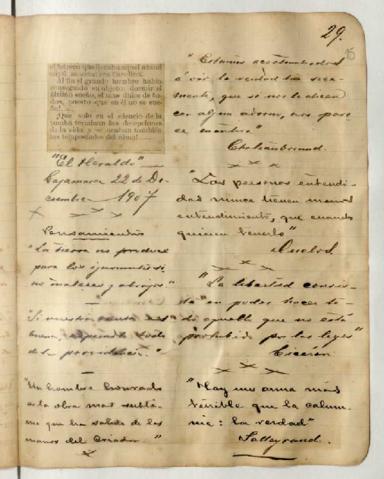 29.
Al fin el grande hombre había
conseguido su objeto: dormir el
último sueño, el más dulce de to-
dos, puesto que en él no se sue-
ña.
Que solo en el silencio de la
tumba terminan las decepciones
de la vida y se acaban también
las tempestades del alma!
"El Heraldo"
Cajamarca 22 de Di-
ciembre 1907
Pensamientos
"La tierra no produce
para los ignorantes si-
no malezas y abrojos"
"Un hombre honrado
es la obra mas subli-
me que ha salido de las
manos del Criador"
"Estamos acostumbrados
á oir la verdad tan
que si nos la dicen
con algun adorno, nos pare-
ce mentira"
Chateaubriand.
"Las personas entendi-
das nunca tienen mas
entendimiento, que cuando
quieren tenerlo"
"La libertad consis-
te en poder hacer to-
do aquello que no está
prohibido por las leyes"
Cicerón.
"Hay un arma más
terrible que la calum-
nia: la verdad"
Talleyrand.